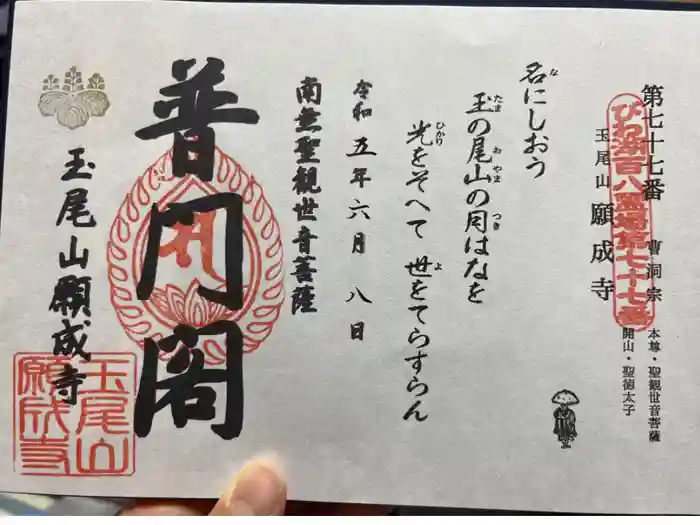 第七十七番 曹洞宗 本尊・聖観世音菩薩
玉尾山 願成寺 開山・聖徳太子
びわ湖百八霊場第七十七番
名にしおう
な
玉の尾山の月はなを
たま お やま つき
光をそへて 世をてらすらん
ひかり よ
令和五年六月八日
南無聖観世音菩薩
普門閣
玉尾山願成寺
玉尾山
願成寺